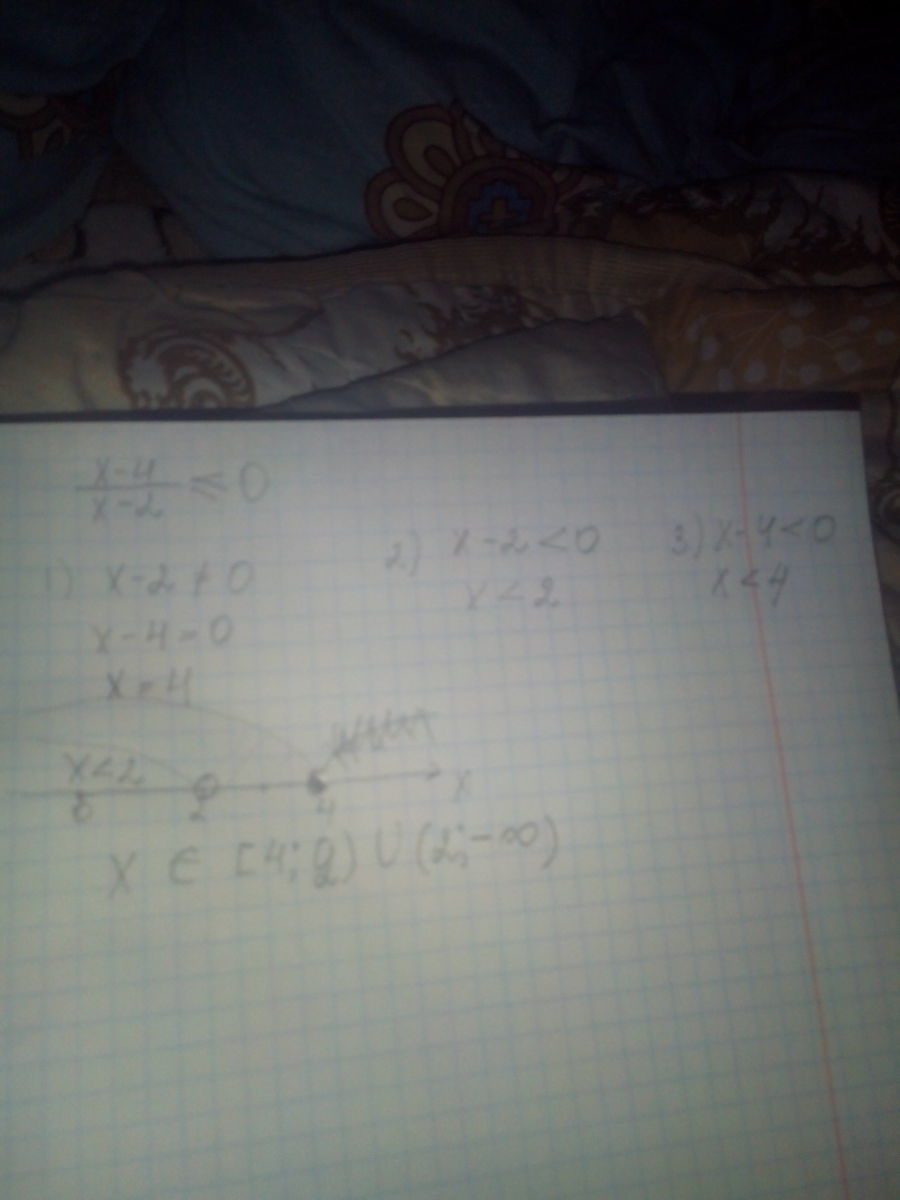 x-4
x-2 ≤ 0
1) x-2 ≠ 0
x-4=0
x=4
2) x-2<0
x<2
3) x-4<0
x<4
x<2
0 2 4 x
x ∈ [4; 2) ∪ (2; -∞)